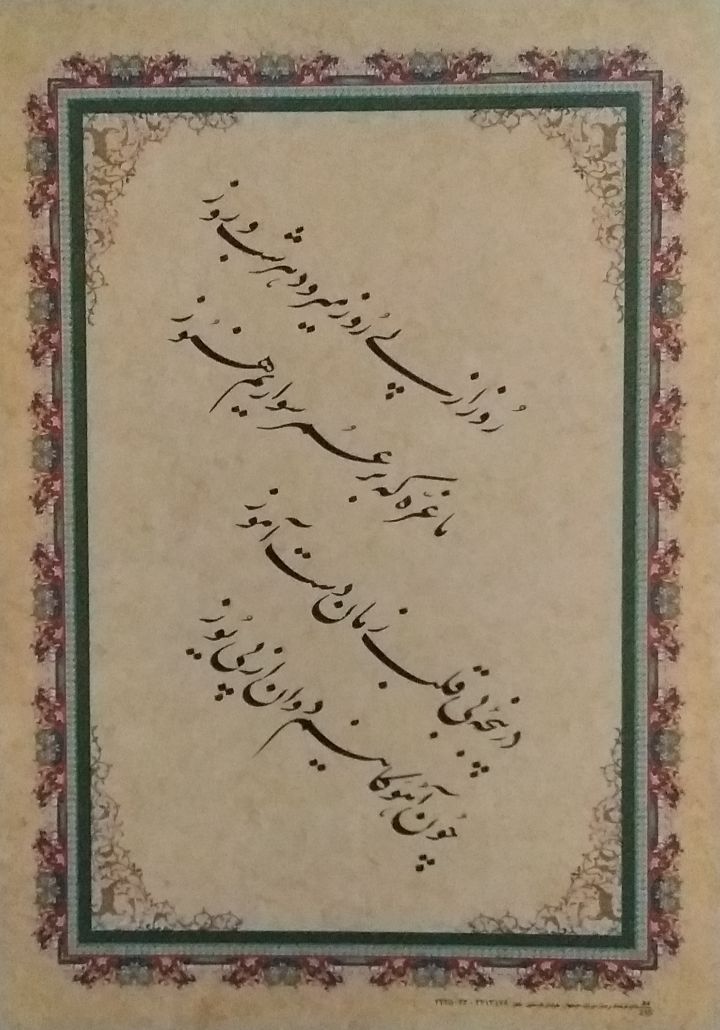 روز از پی روز میرود هر شب و روز
ما غرّه که بر عمر سواریم هنوز
در پنجهٔ بی قلب زمان دست آموز
چون آهوکانیم دوان از پی یوز